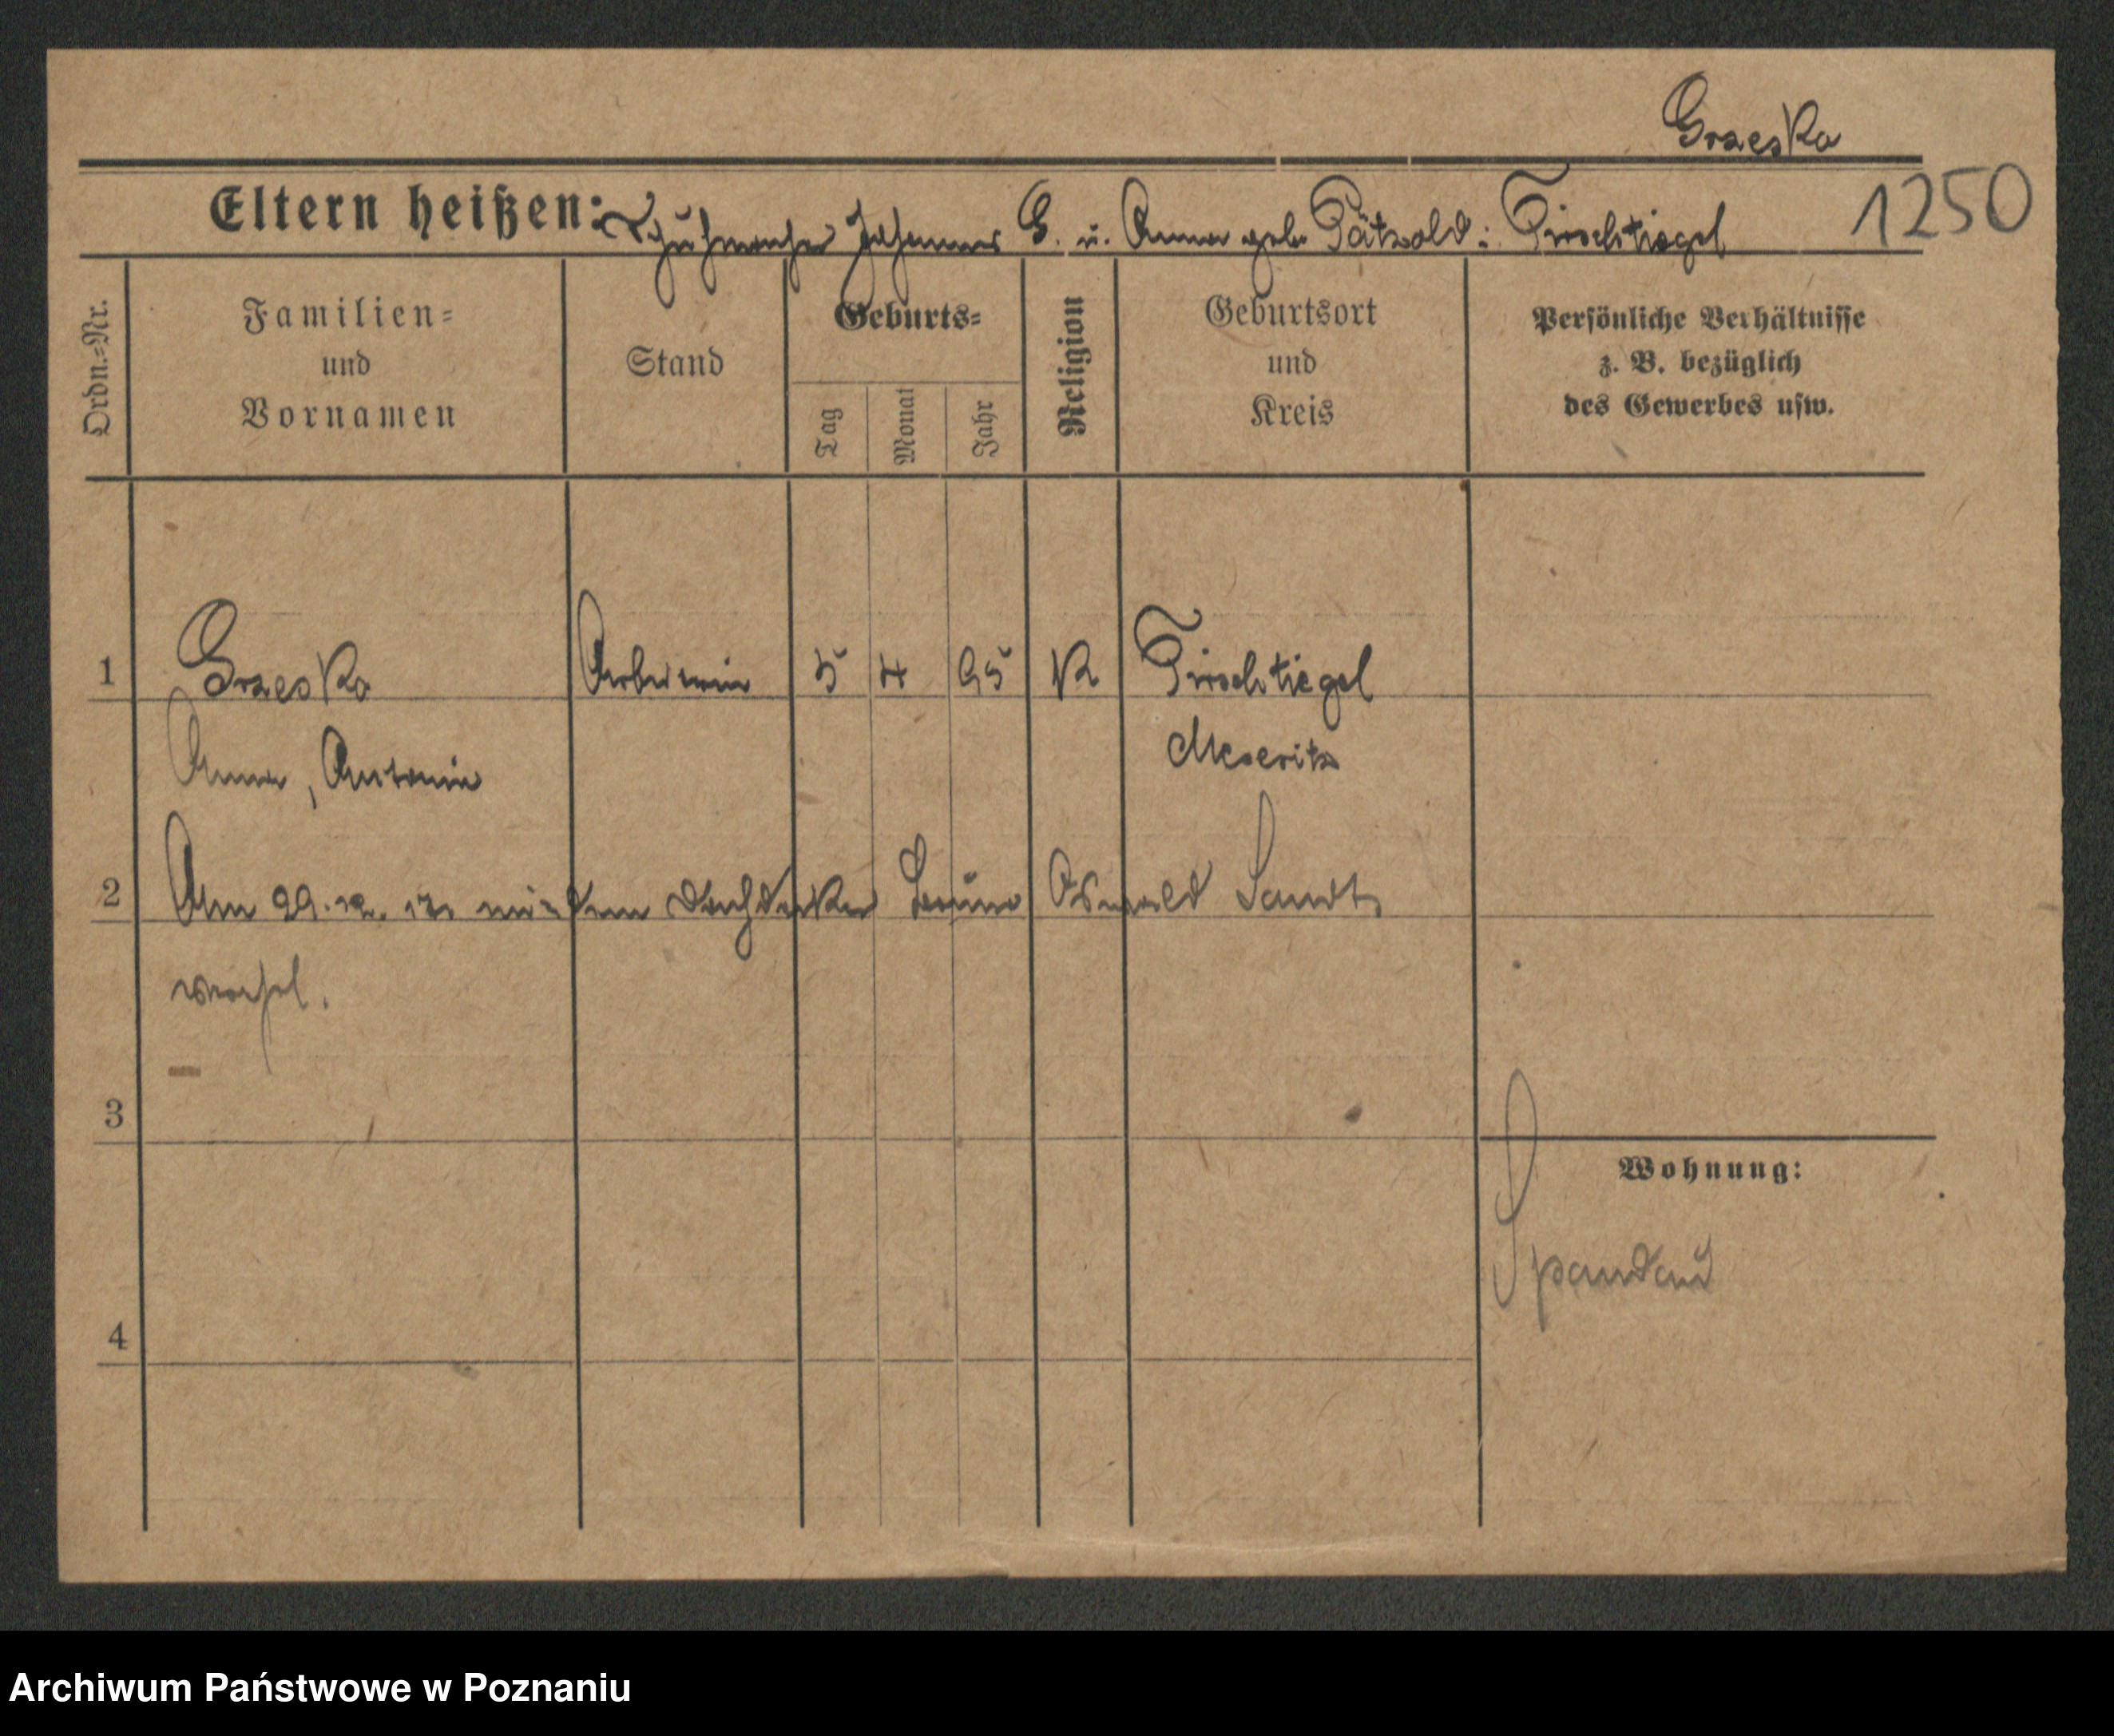 Grzeska
1250
Eltern heißen: Schuhmacher Johannes G. u. Anna geb. Pätzold: Tirschtiegel
Ordn.=Nr.
Familien=
und
Vornamen
Stand
Geburts=
Tag
Monat
Jahr
Religion
Geburtsort
und
Kreis
Persönliche Verhältnisse
z. B. bezüglich
des Gewerbes usw.
1 Grzeska Arbeiterin 5 4 95 K Tirschtiegel
Anna, Antonie Meseritz
2 Am 29.12. 17 mit dem Dachdecker Bruno Oswald Sandt
verehel.
3
Wohnung:
Spandau
4
Archiwum Państwowe w Poznaniu